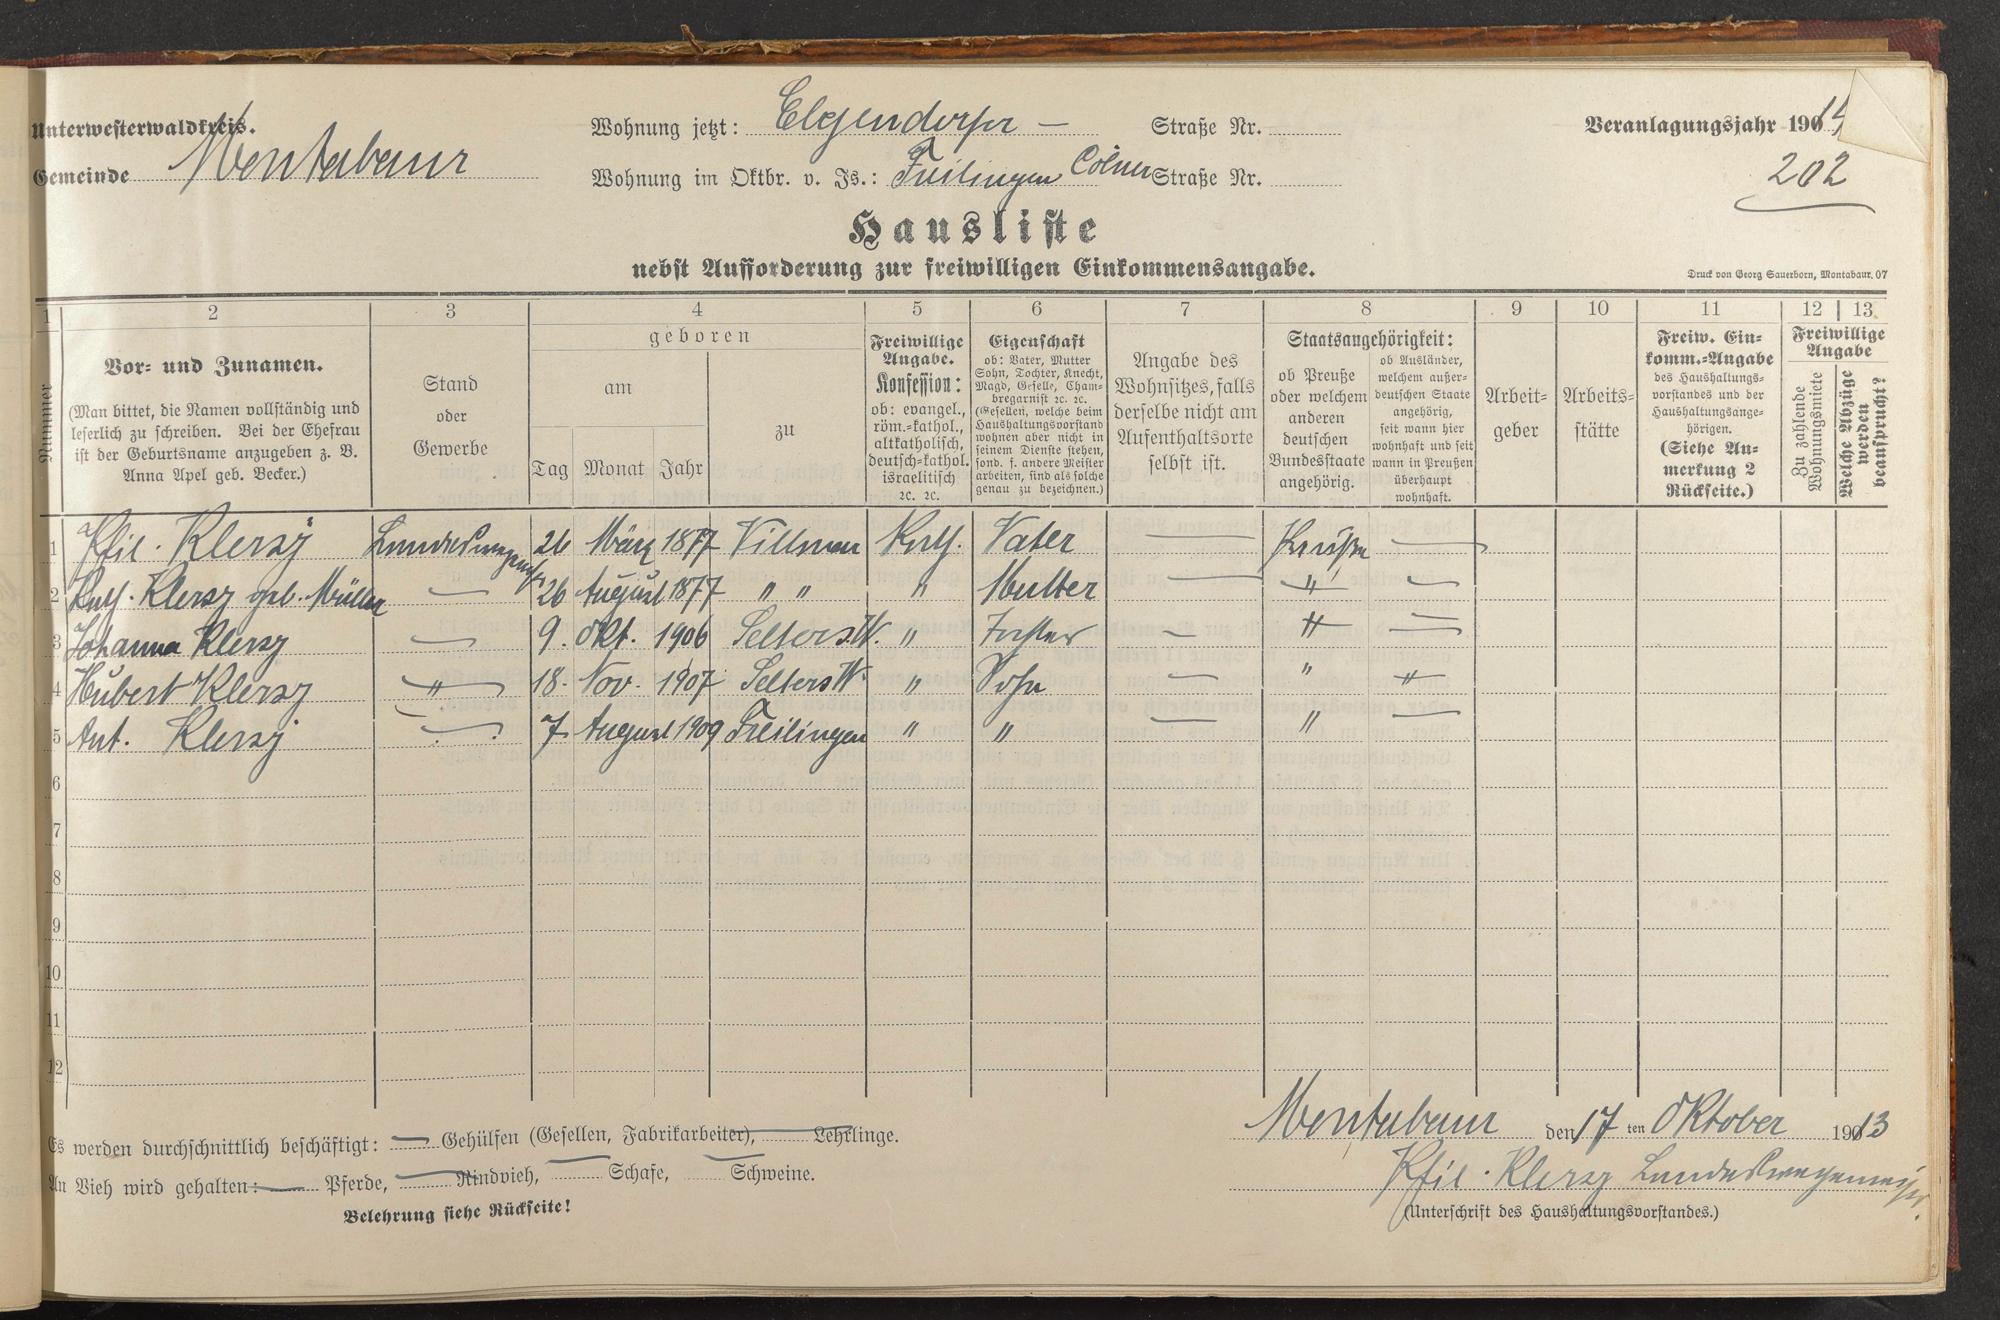 Unterwesterwaldkreis.
Wohnung jetzt: Elgendorfer — Straße Nr.
Veranlagungsjahr 1914
Gemeinde Montabaur
Wohnung im Oktbr. v. Js.: Freilingen Cölner Straße Nr.
202
Hausliste
nebst Aufforderung zur freiwilligen Einkommensangabe.
Druck von Georg Sauerborn, Montabaur. 07
1 2 3 4 5 6 7 8 9 10 11 12 13
Nummer
Vor- und Zunamen.
(Man bittet, die Namen vollständig und
leserlich zu schreiben. Bei der Ehefrau
ist der Geburtsname anzugeben z. B.
Anna Apel geb. Becker.)
Stand
oder
Gewerbe
geboren
am
Tag Monat Jahr
zu
Freiwillige
Angabe.
Konfession:
ob: evangel.,
röm.-kathol.,
altkatholisch,
deutsch-kathol.
israelitisch
ꝛc. ꝛc.
Eigenschaft
ob: Vater, Mutter
Sohn, Tochter, Knecht,
Magd, Geselle, Cham-
bregarnist ꝛc. ꝛc.
(Gesellen, welche beim
Haushaltungsvorstand
wohnen aber nicht in
seinem Dienste stehen,
sond. f. andere Meister
arbeiten, sind als solche
genau zu bezeichnen.)
Angabe des
Wohnsitzes, falls
derselbe nicht am
Aufenthaltsorte
selbst ist.
Staatsangehörigkeit:
ob Preuße
oder welchem
anderen
deutschen
Bundesstaate
angehörig.
ob Ausländer,
welchem außer-
deutschen Staate
angehörig,
seit wann hier
wohnhaft und seit
wann in Preußen
überhaupt
wohnhaft.
Arbeit-
geber
Arbeits-
stätte
Freiw. Ein-
komm.-Angabe
des Haushaltungs-
vorstandes und der
Haushaltungsange-
hörigen.
(Siehe An-
merkung 2
Rückseite.)
Freiwillige
Angabe
Zu zahlende
Wohnungsmiete
Welche Abzüge
werden
beansprucht?
1 Klersy 26 März 1877 Villmar Kath. Vater — Preuße —
2 Kath. Klersy geb. Müller — 26 August 1877 " " " Mutter — " —
3 Johanna Klersy — 9. Okt. 1906 Selters W. " Tochter — " —
4 Hubert Klersy " 18. Nov. 1907 Selters W. " Sohn — " "
5 Ant. Klersy — 7 August 1909 Freilingen " " — " —
6
7
8
9
10
11
12
Montabaur den 17 ten Oktober 1913
Es werden durchschnittlich beschäftigt: — Gehülfen (Gesellen, Fabrikarbeiter), — Lehrlinge.
Klersy Landeswegemeister.
An Vieh wird gehalten: — Pferde, — Rindvieh, — Schafe, — Schweine.
(Unterschrift des Haushaltungsvorstandes.)
Belehrung siehe Rückseite!